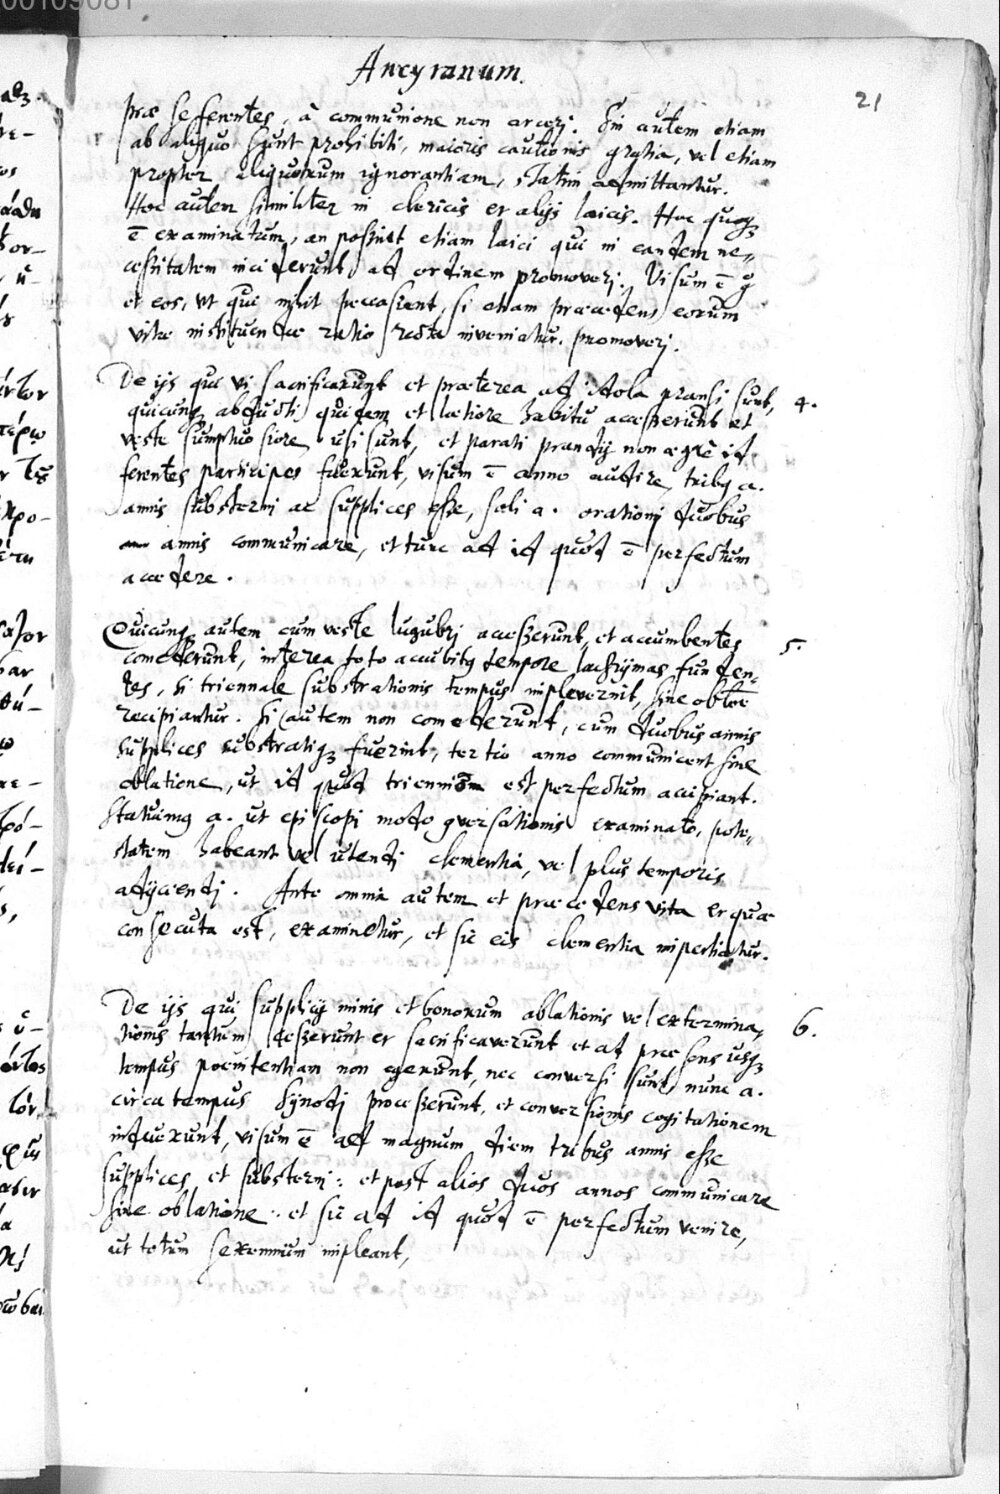 00109081
Ancyranum.
21
præ se ferentes, à communione non arceri. Sin autem etiam
ab aliquo sunt prohibiti, maioris cautionis gratia, vel etiam
propter aliquorum ignorantiam, statim admittantur.
Hoc autem similiter in clericis et alijs laicis. Hoc quoqꝫ
ē examinatum, an possint etiam laici qui in eandem ne„
cessitatem inciderunt, ad ordinem promoveri. Visum ē g
et eos, ut qui nihil peccassent, si etiam præcedens eorum
vitæ instituendæ ratio recta inveniatur, promoveri.
De ijs qui vi sacrificarunt et præterea ad idola pransi sunt,
4.
quicunqꝫ abducti quidem et lætiore habitu accesserunt et
veste sumptuosiore usi sunt, et parati prandij non ægrè id
ferentes participes fuerunt, visum ē anno audire, tribꝫ a.
annis substerni ac supplices esse, soli a. orationi duobus
annis communicare, et tunc ad id quod ē perfectum
accedere.
Quicunqꝫ autem cum veste lugubri accesserunt, et accumbentes
5.
comederunt, interea toto accubitꝫ tempore lachrymas funden„
tes, si triennale substrationis tempus impleverint, sine oblōe
recipiantur. Si autem non comederunt, cum duobus annis
supplices substratiqꝫ fuerint, tertio anno communicent sine
oblatione, ut id quod triennio est perfectum accipiant.
Statuimꝫ a. ut episcopi modo gversationis examinato, pote„
statem habeant vel utendi clementia, vel plus temporis
adijciendi. Ante omnia autem et præcedens vita et quæ
consecuta est, examinetur, et sic eis clementia impertiatur.
De ijs qui supplicij minis et bonorum ablationis vel extermina„
6.
tionis tantum cesserunt et sacrificaverunt et ad præsens usqꝫ
tempus poenitentiam non egerunt, nec conversi sunt, nunc a.
circa tempus Synodi processerunt, et conversionis cogitationem
induxerunt, visum ē ad magnum diem tribus annis esse
supplices et substerni: et post alios duos annos communicare
sine oblatione: et sic ad id quod ē perfectum venire,
ut totum sexennium impleant,